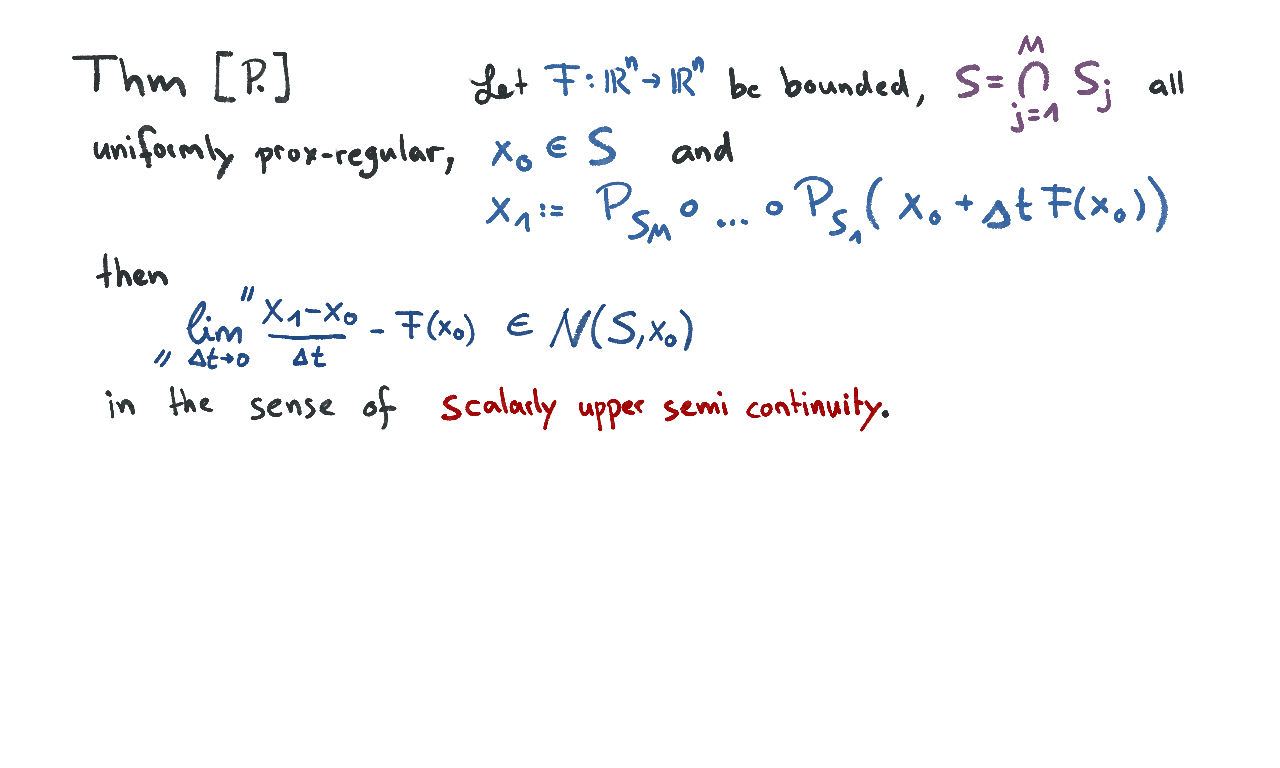 Thm [P.] Let F : ℝⁿ → ℝⁿ be bounded, S = ⋂_{j=1}^{M} S_j all
uniformly prox-regular, x₀ ∈ S and
x₁ := P_{S_M} ∘ ... ∘ P_{S_1} ( x₀ + Δt F(x₀) )
then
" lim_{Δt→0} " (x₁ - x₀)/Δt - F(x₀) ∈ N(S, x₀)
in the sense of scalarly upper semi continuity.